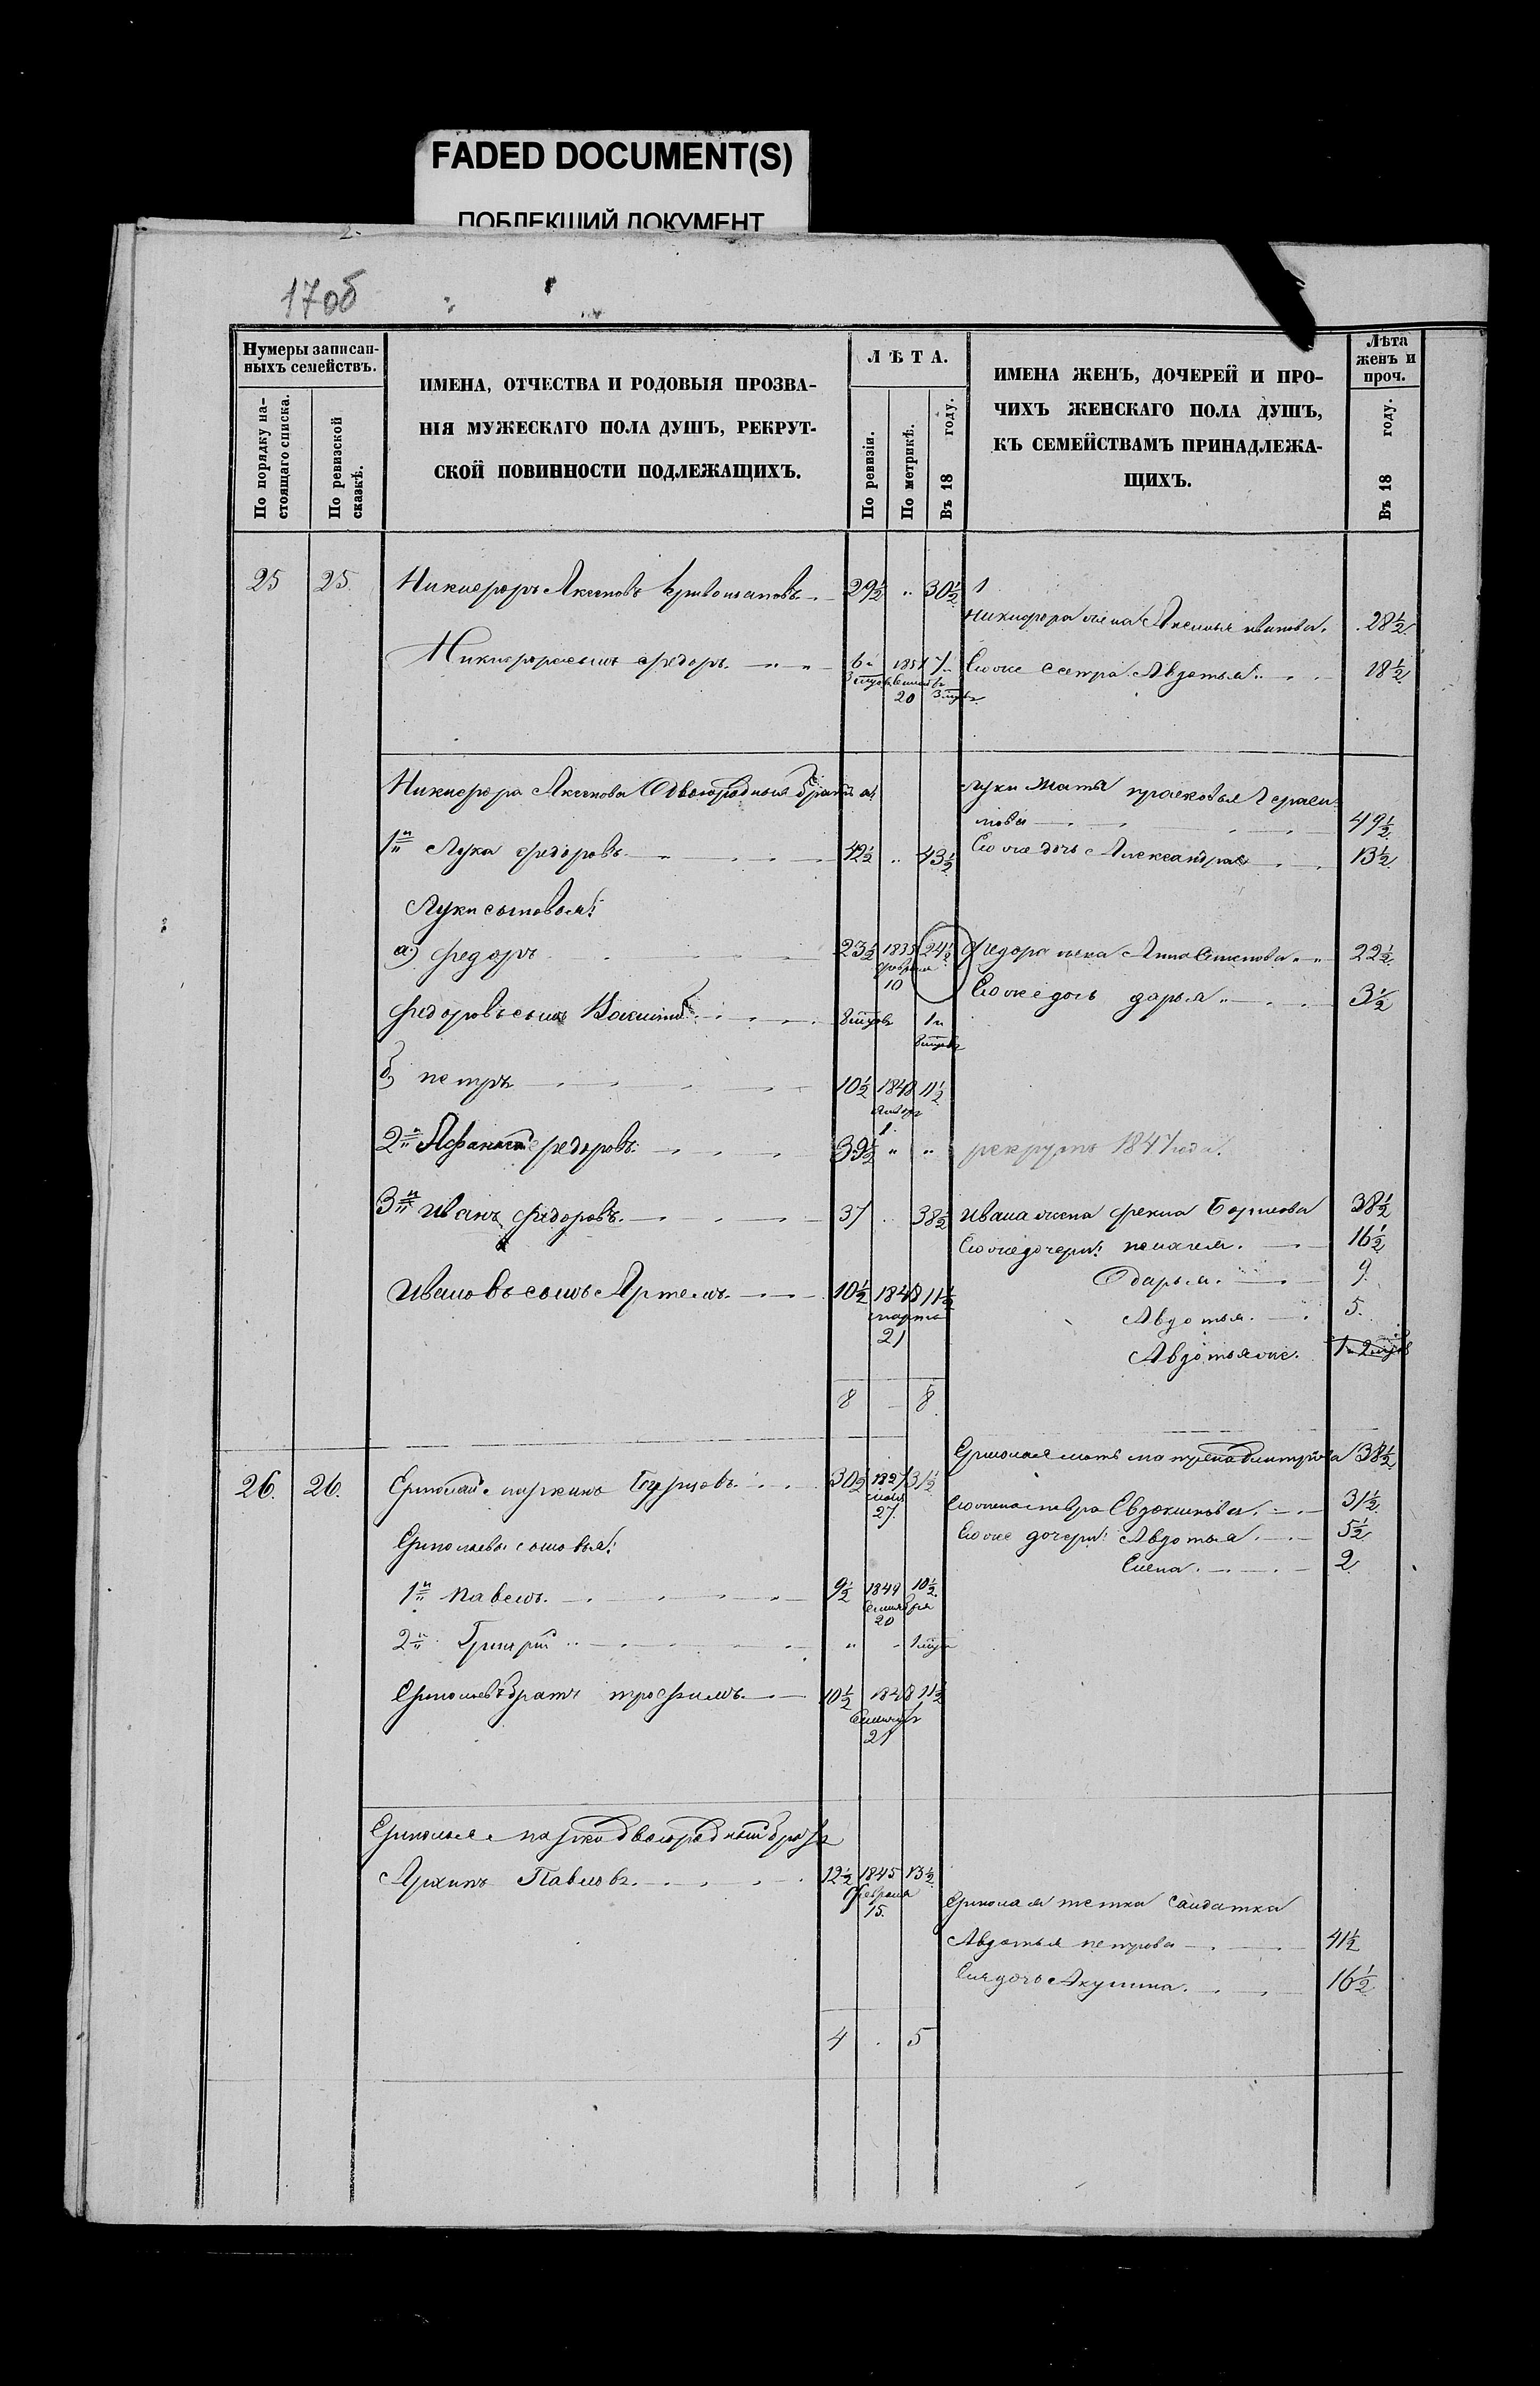 FADED DOCUMENT(S)
ПОБЛЕКШИЙ ДОКУМЕНТ
17об
Нумеры записан-
ныхъ семействъ.
По порядку на-
стоящаго списка.
По ревизской
сказкѣ.
ИМЕНА, ОТЧЕСТВА И РОДОВЫЯ ПРОЗВА-
НІЯ МУЖЕСКАГО ПОЛА ДУШЪ, РЕКРУТ-
СКОЙ ПОВИННОСТИ ПОДЛЕЖАЩИХЪ.
ЛѢТА.
По ревизіи.
По метрикѣ.
Въ 18 году.
ИМЕНА ЖЕНЪ, ДОЧЕРЕЙ И ПРО-
ЧИХЪ ЖЕНСКАГО ПОЛА ДУШЪ,
КЪ СЕМЕЙСТВАМЪ ПРИНАДЛЕЖА-
ЩИХЪ.
Лѣта
женъ и
проч.
Въ 18 году.
25 25 Никифоръ Аксеновъ 29½ " 30½
Никифора жена Аксинья иванова. 28½
Никифора сынъ Федоръ 6 1851 7
20
Его же сестра Авдотья 18½
Никифора Аксенова двоюродныя братья
Луки мать прасковья Гераси-
мова 49½
1й Лука Федоровъ 42½ " 43½
Его же дочь Александра 13½
Луки сыновья:
а) Федоръ 23½ 1835 24½
февраля
10
Федора жена Анна Семенова 22½
Его же дочь дарья 3½
Федоровъ сынъ
б) петръ 10½ 1848 11½
1
2й Афанасій Федоровъ 39½ " "
рекрутъ 1847 года
3й иванъ Федоровъ 37 38½
ивана жена фекла 38½
Его же дочери: пелагея 16½
дарья 9
Авдотья 5
Авдотья же
Ивановъ сынъ Артемъ 10½ 1848 11½
марта
21
8 - 8
26. 26. Ермолай маркинъ 30½ 1827 31½
27.
Ермолая мать матрена дмитріева 38½
Евдокимова 31½
Его же дочери: Авдотья 5½
Елена 2
Ермолаевы сыновья:
1й павелъ 9½ 1849 10½
Сентября
20
2й Григорій " - 1
Ермолаевъ братъ трофимъ 10½ 1848 11½
21
Ермолая маркина двоюродный братъ
Архипъ Павловъ 12½ 1845 13½
февраля
15.
Ермолая тетка солдатка
Авдотья петрова 41½
Ея дочь Акулина 16½
4 . 5